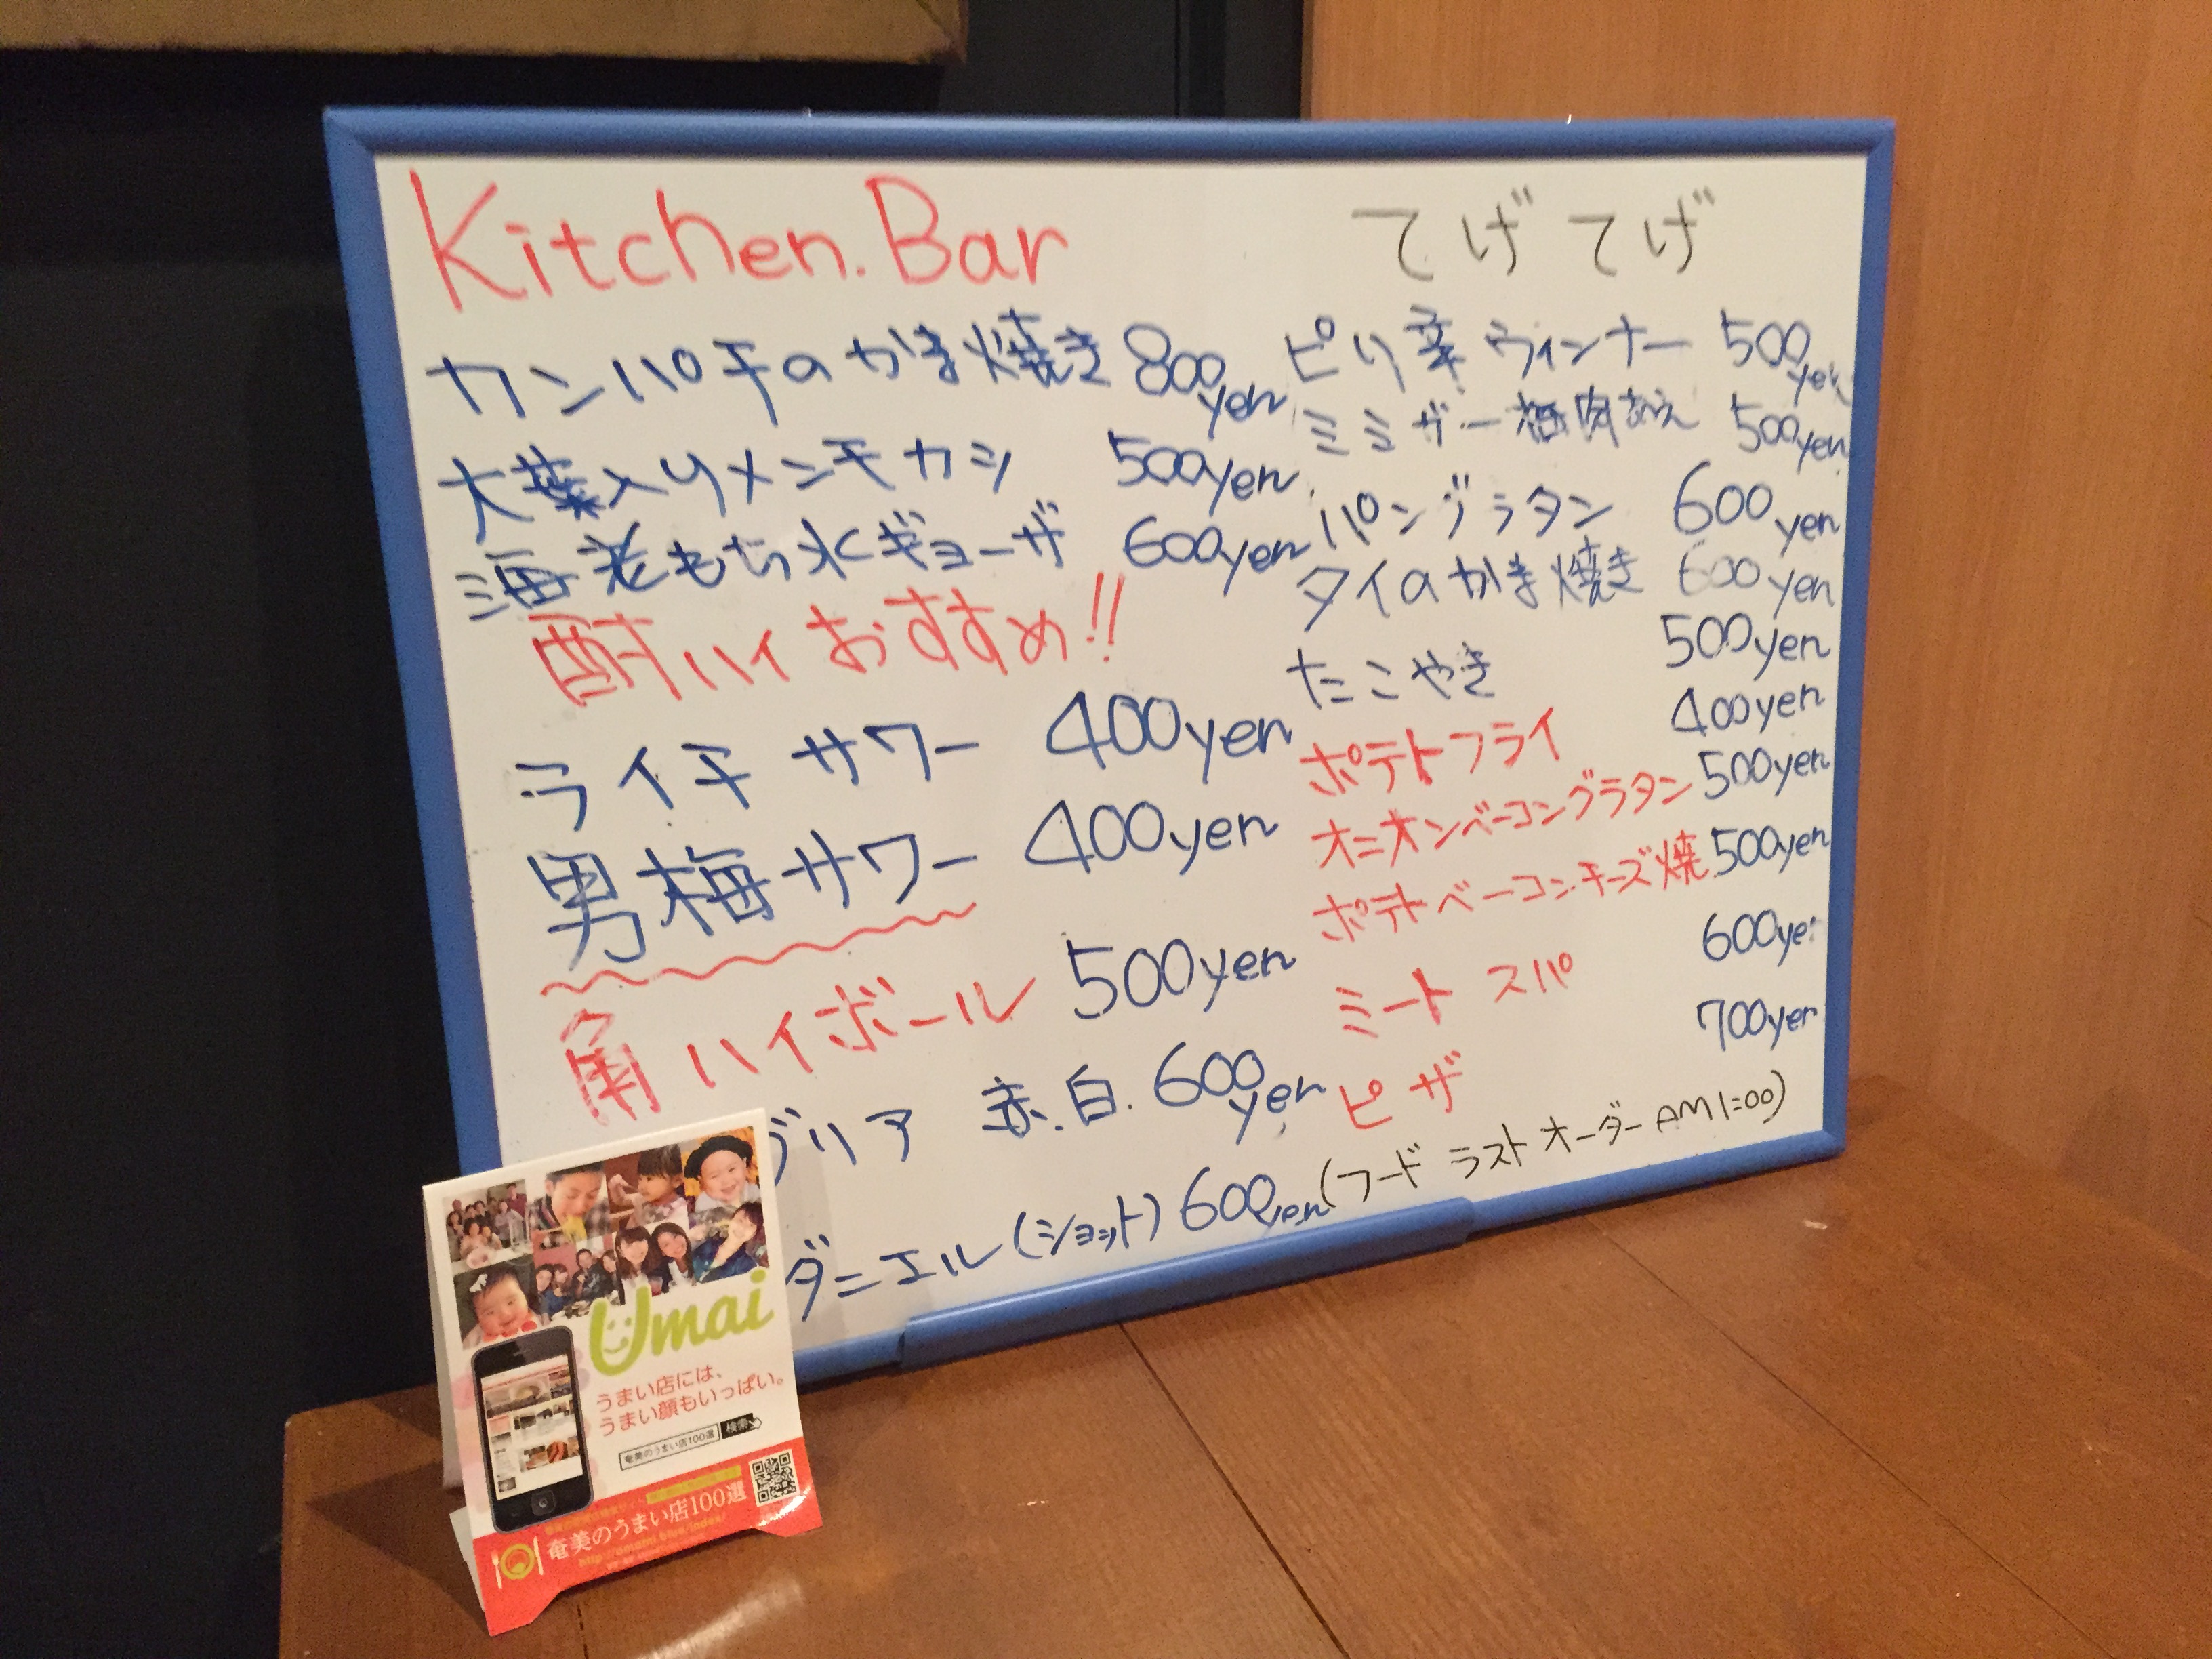 Kitchen.Bar
てげてげ
カンパチのかま焼き 800yen
大葉入りメンチカシ 500yen
海老もち水ギョーザ 600yen
酎ハイおすすめ!!
ライチサワー 400yen
男梅サワー 400yen
角ハイボール 500yen
グリア 赤.白. 600yen
ダニエル(ショット) 600yen
ピリ辛ウィンナー 500yen
ミミガー梅肉あえ 500yen
パングラタン 600yen
タイのかま焼き 600yen
たこやき 500yen
ポテトフライ 400yen
オニオンベーコングラタン 500yen
ポテトベーコンチーズ焼 500yen
ミートスパ 600yen
ピザ 700yen
(フードラストオーダーAM1:00)
Umai
うまい店には、
うまい顔もいっぱい。
奄美のうまい店100選 検索
奄美のうまい店100選